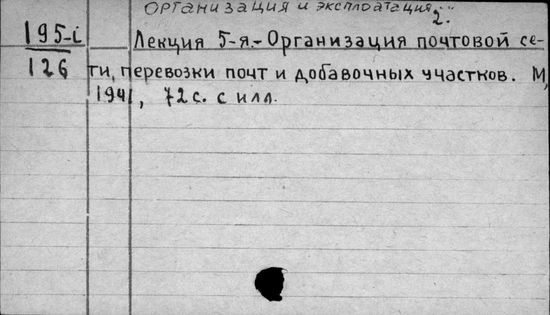 организация и эксплоатация...
2.
195-i
126
Лекция 5-я.- Организация почтовой се-
ти, перевозки почт и добавочных участков. М,
1941, 72с. с илл.